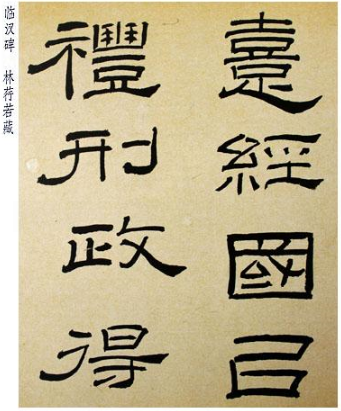 临汉碑 林荇若藏
經國㠯
禮刑政得